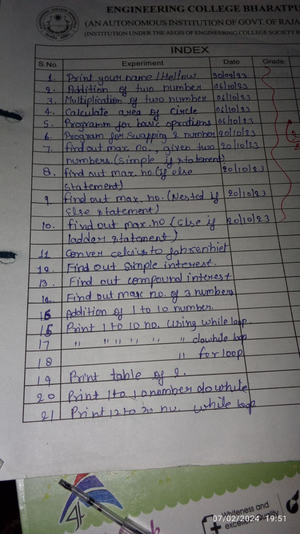 ENGINEERING COLLEGE BHARATPU
(AN AUTONOMOUS INSTITUTION OF GOVT. OF RAJA
(INSTITUTION UNDER THE AEGIS OF ENGINEERING COLLEGE SOCIETY
INDEX
S.No. Experiment Date Grade
1. Print your name / Hellow 30/09/23
2. Addition of two number 06/10/23
3. Multiplication of two number 06/10/23
4. Calculate area of circle 06/10/23
5. Programm for basic oprations 06/10/23
6. Program for Swapping 2 number 20/10/23
7. find out max no., given two 20/10/23
numbers. (Simple if statement)
8. find out max. no (if else 20/10/23
statement)
9. find out max. no. (Nested if 20/10/23
else statement)
10. find out max.no (else if 20/10/23
ladder statement)
11. Conver celcius to fahrenhiet
12. Find out Simple interest.
13. Find out compound interest
14. Find out max no. of 3 numbers
15 Addition of 1 to 10 number.
16 Print 1 to 10 no. using while loop
17 " " " " " " dowhile loop
18 " for loop
19 Print table of 2.
20 Print 1 to 10 number do while
21 Print 12 to no. while loop
Whiteness and
07/02/2024 19:51